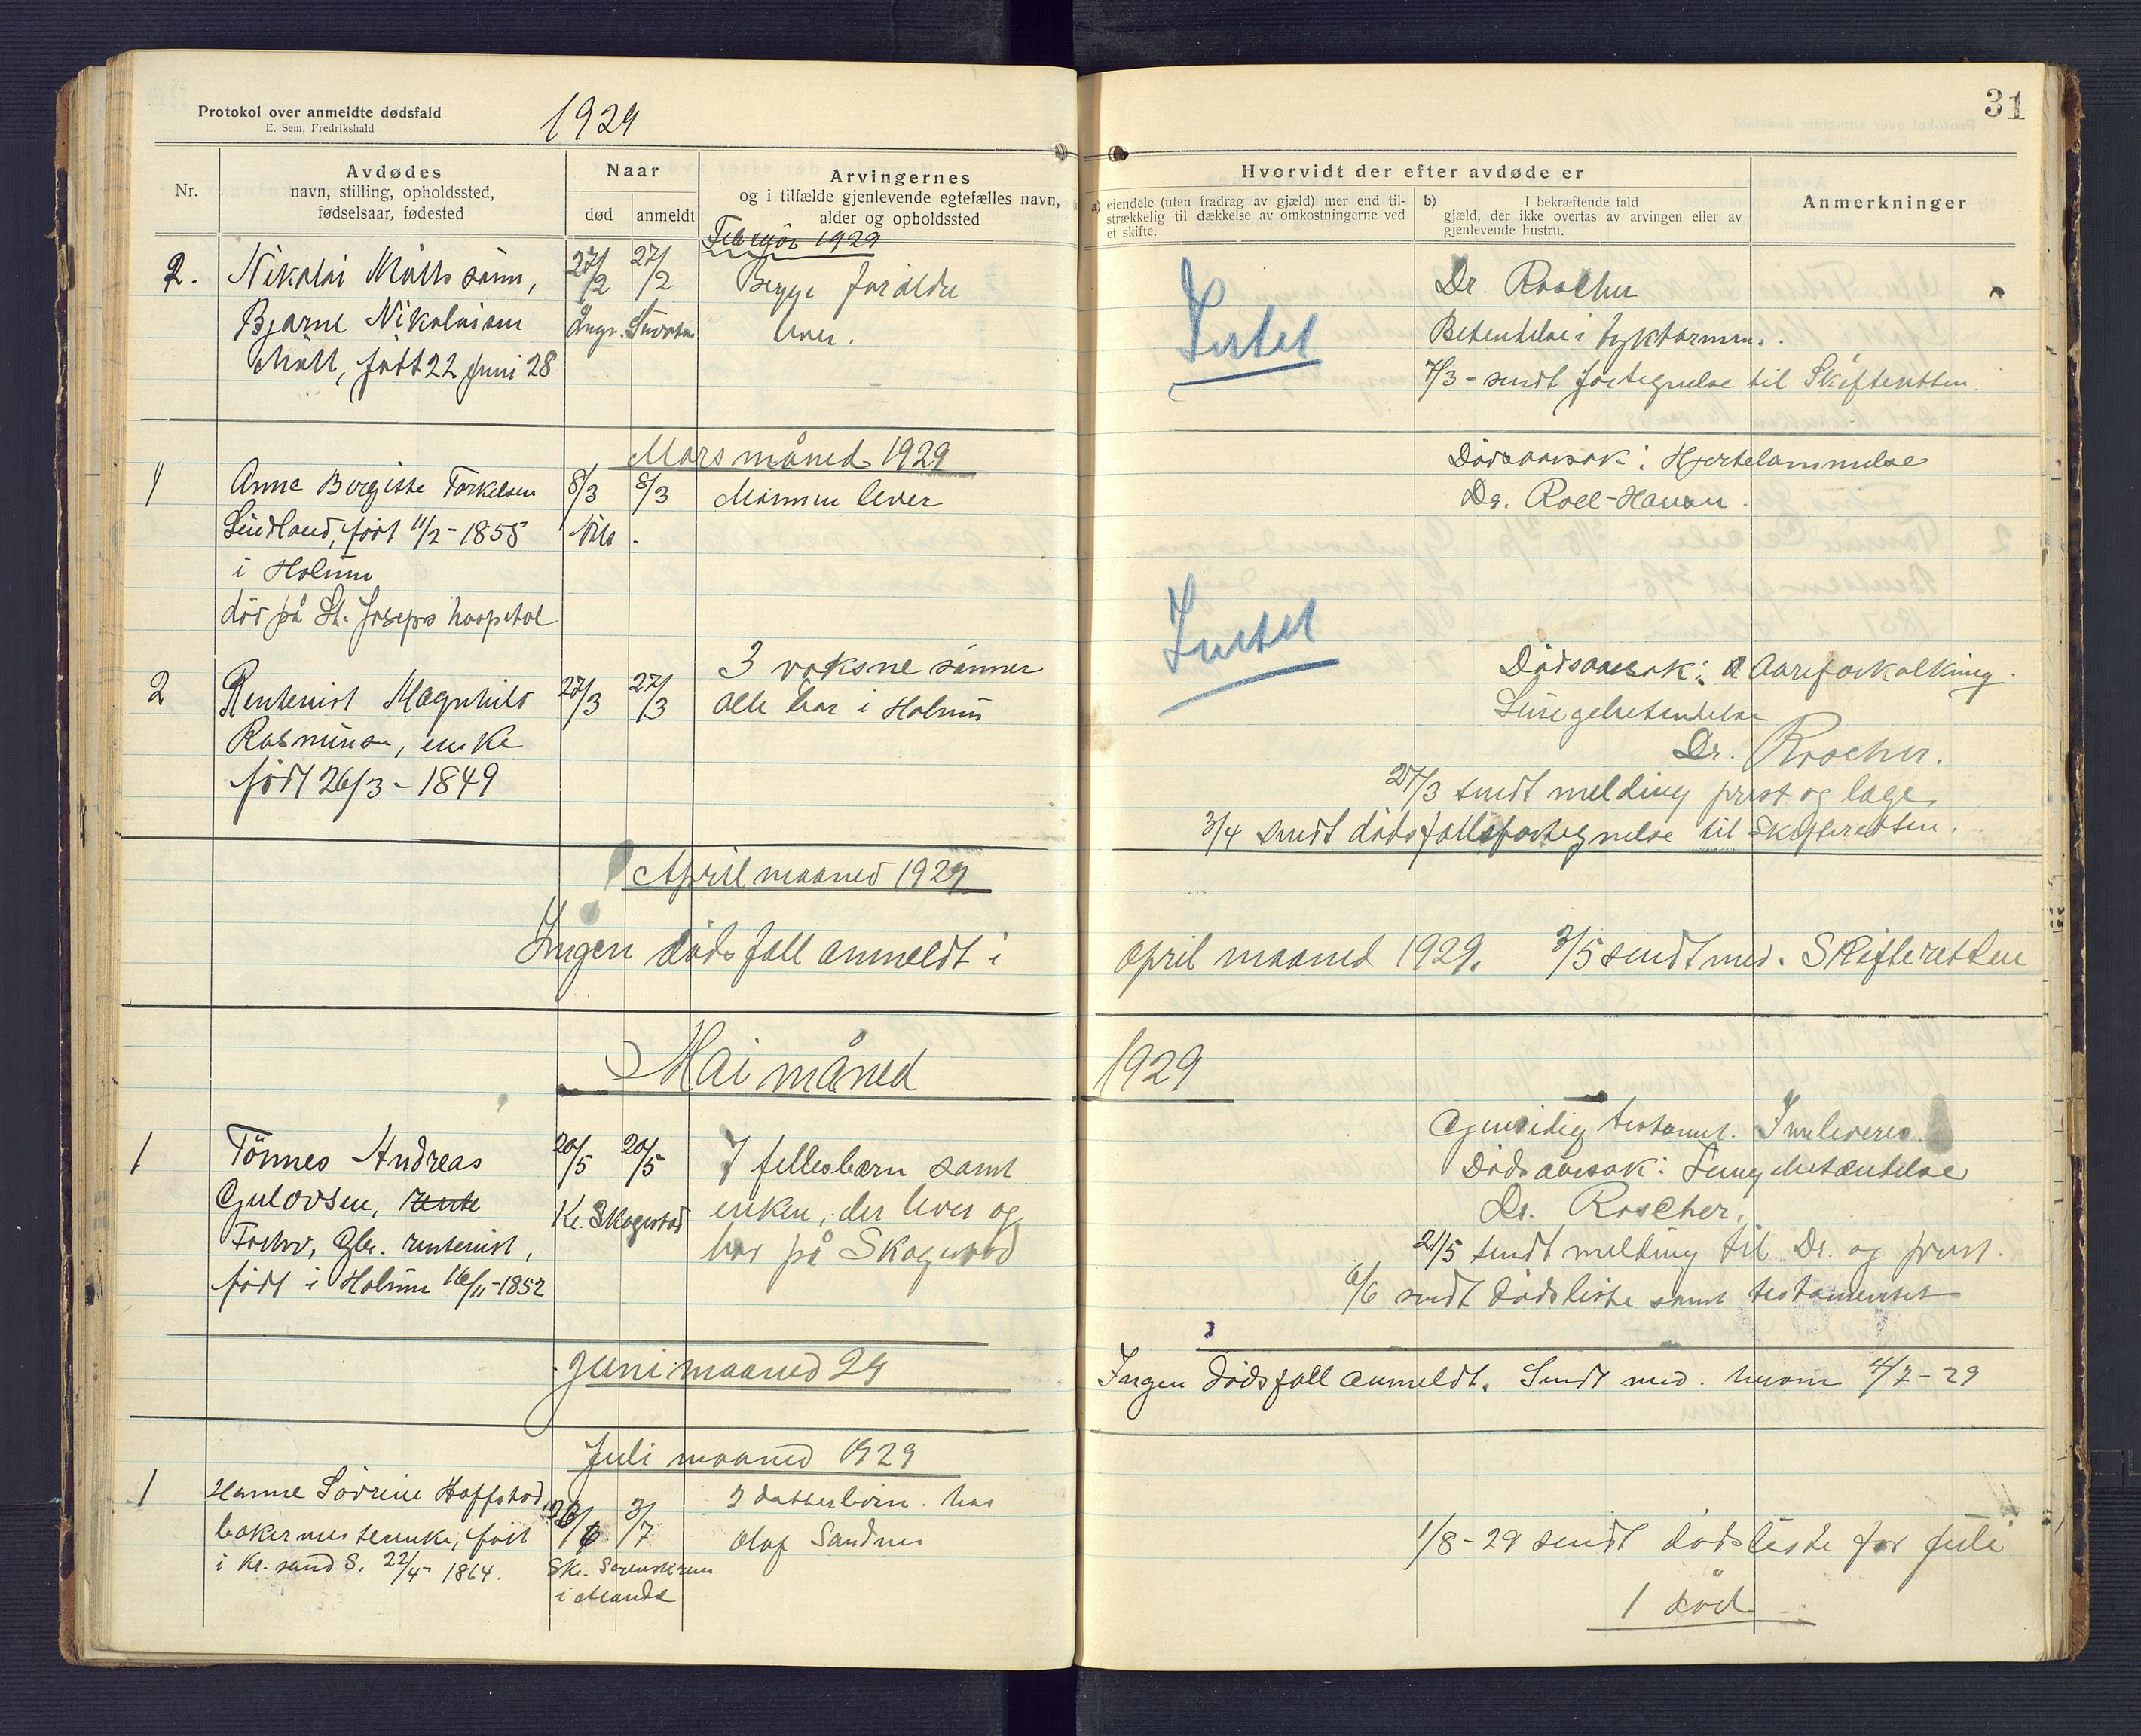 Protokol over anmeldte dødsfald
E. Sem, Fredrikshald
1929
Nr.
Avdødes
navn, stilling, opholdssted,
fødselsaar, fødested
Naar
død
anmeldt
Arvingernes
og i tilfælde gjenlevende egtefælles navn,
alder og opholdssted
Februar 1929
2.
Nikolai Mølls sønn,
Bjarne Nikolaisen
Møll, født 22 Juni 28
27/2
27/2
Begge foreldre
lever.
Mars måned 1929
1
Anna Bergitte Torkelsen
Lindland, født 11/2 - 1855
i Holum
død på St. Joseps hospital
8/3
8/3
Nils
Mannen lever
2
Rentenist Magnhild
Rasmussen, enke
født 26/3 - 1849
27/3
27/3
3 voksne sønner
alle bor i Holum
April maaned 1929
Ingen dødsfall anmeldt i
Mai måned
1
Tønnes Andreas
Gulovsen, rente
Forhv. Gbr. rentenist,
født i Holum 16/11-1852
20/5
20/5
Kr. Skogestad
7 fellesbarn samt
enken, der lever og
bor på Skogestad
Juni maaned 29
Juli maaned 1929
1
Hanne Sørine Hoffstad,
bakermesterenke, født
i Kr. sund S. 22/4 - 1864.
3/7
i Mandal
2 datterbørn. hos
Olaf Sandnes
31
Hvorvidt der efter avdøde er
a) eiendele (uten fradrag av gjæld) mer end til-
strækkelig til dækkelse av omkostningerne ved
et skifte.
b) I bekræftende fald
gjæld, der ikke overtas av arvingen eller av
gjenlevende hustru.
Anmerkninger
Intet
Dr. Roscher
Betendelse i tyktarmen.
7/3 - sendt fortegnelse til Skifteretten.
Dødsaarsak: Hjertelammelse
Dr. Roll-Hansen.
Intet
Dødsaarsak: Aareforkalkning.
Lungebetendelse
Dr. Roscher.
27/3 sendt melding prest og læge
3/4 sendt dødsfallsfortegnelse til Skifteretten.
april maaned 1929. 3/5 sendt med. Skifteretten
1929
Gjensidig testament. Innleveres.
Dødsaarsak: Lungebetændelse
Dr. Roscher.
21/5 sendt melding til Dr. og prest.
6/6 sendt dødsliste samt testamentet
Ingen dødsfall anmeldt. Sendt med. herom 4/7 - 29
1/8 - 29 sendt dødsliste for Juli
1 død